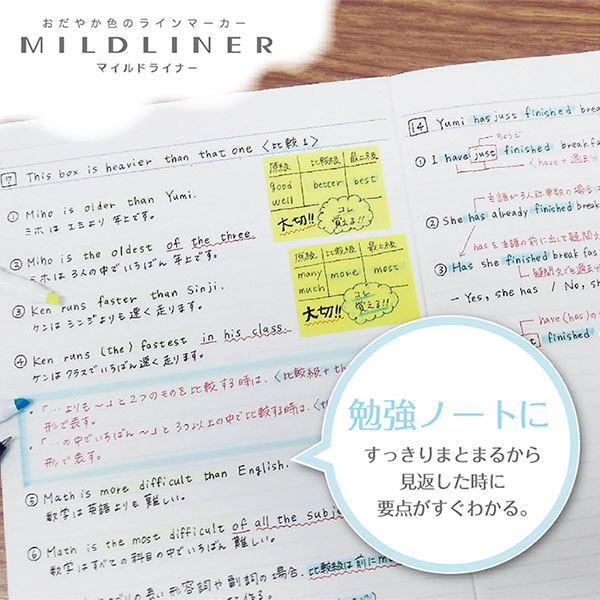 おだやか色のラインマーカー
MILDLINER
マイルドライナー
7 This box is heavier than that one 〈比較1〉
① Miho is older than Yumi.
ミホはユミより年上です。
② Miho is the oldest of the three.
ミホは3人の中でいちばん年上です。
③ Ken runs faster than Sinji.
ケンはシンジよりも速く走ります。
④ Ken runs (the) fastest in his class.
ケンはクラスでいちばん速く走ります。
・「…よりも〜」と2つのものを比較する時は、〈比較級+th
形で表す。
・「…の中でいちばん〜」と3つ以上の中で比較する時は、
形で表す。
⑤ Math is more difficult than English.
数学は英語よりも難しい。
⑥ Math is the most difficult of all the subje
数学はすべての科目の中でいちばん難しい。
の長い形容詞や副詞の場合、比較級は前にm
原級 比較級 最上級
good better best
well
大切!! コレ覚える!!
原級 比較級 最上級
many more most
much
大切!! コレ覚える!!
14 Yumi has just finished break
ちょうど
① I have just finished breakfa
〈have+過去分
主語が3人称単数の場合は
② She has already finished brea
hasを主語の前に出して疑問文
③ Has she finished breakfas
疑問文でも過去分
– Yes, she has / No, sh
have(has)の
finished
勉強ノートに
すっきりまとまるから
見返した時に
要点がすぐわかる。